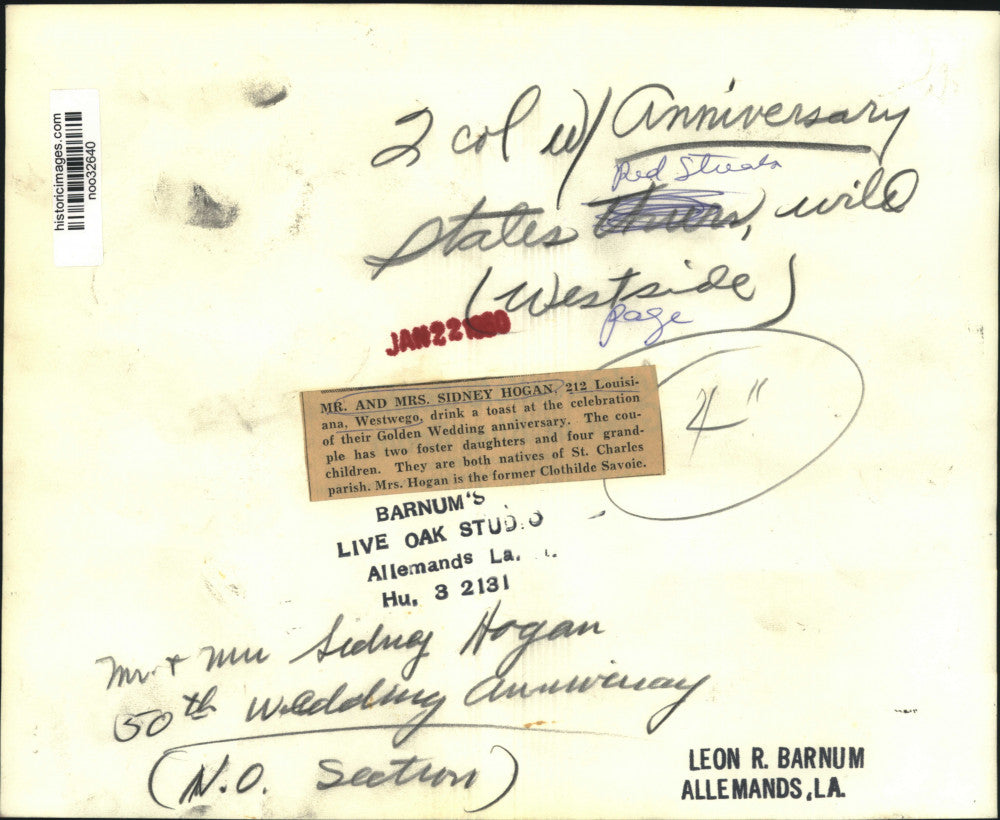 historicimages.com
noo32640
2 col w/ Anniversary
Red Streak
States, will
(Westside)
page
JAN 22 1960
4"
MR. AND MRS. SIDNEY HOGAN, 212 Louisi-
ana, Westwego, drink a toast at the celebration
of their Golden Wedding anniversary. The cou-
ple has two foster daughters and four grand-
children. They are both natives of St. Charles
parish. Mrs. Hogan is the former Clothilde Savoie.
BARNUM'S
LIVE OAK STUDIO
Allemands La.
Hu. 3 2131
Mr. + Mrs Sidney Hogan
50th Wedding Anniversary
(N.O. Section)
LEON R. BARNUM
ALLEMANDS, LA.